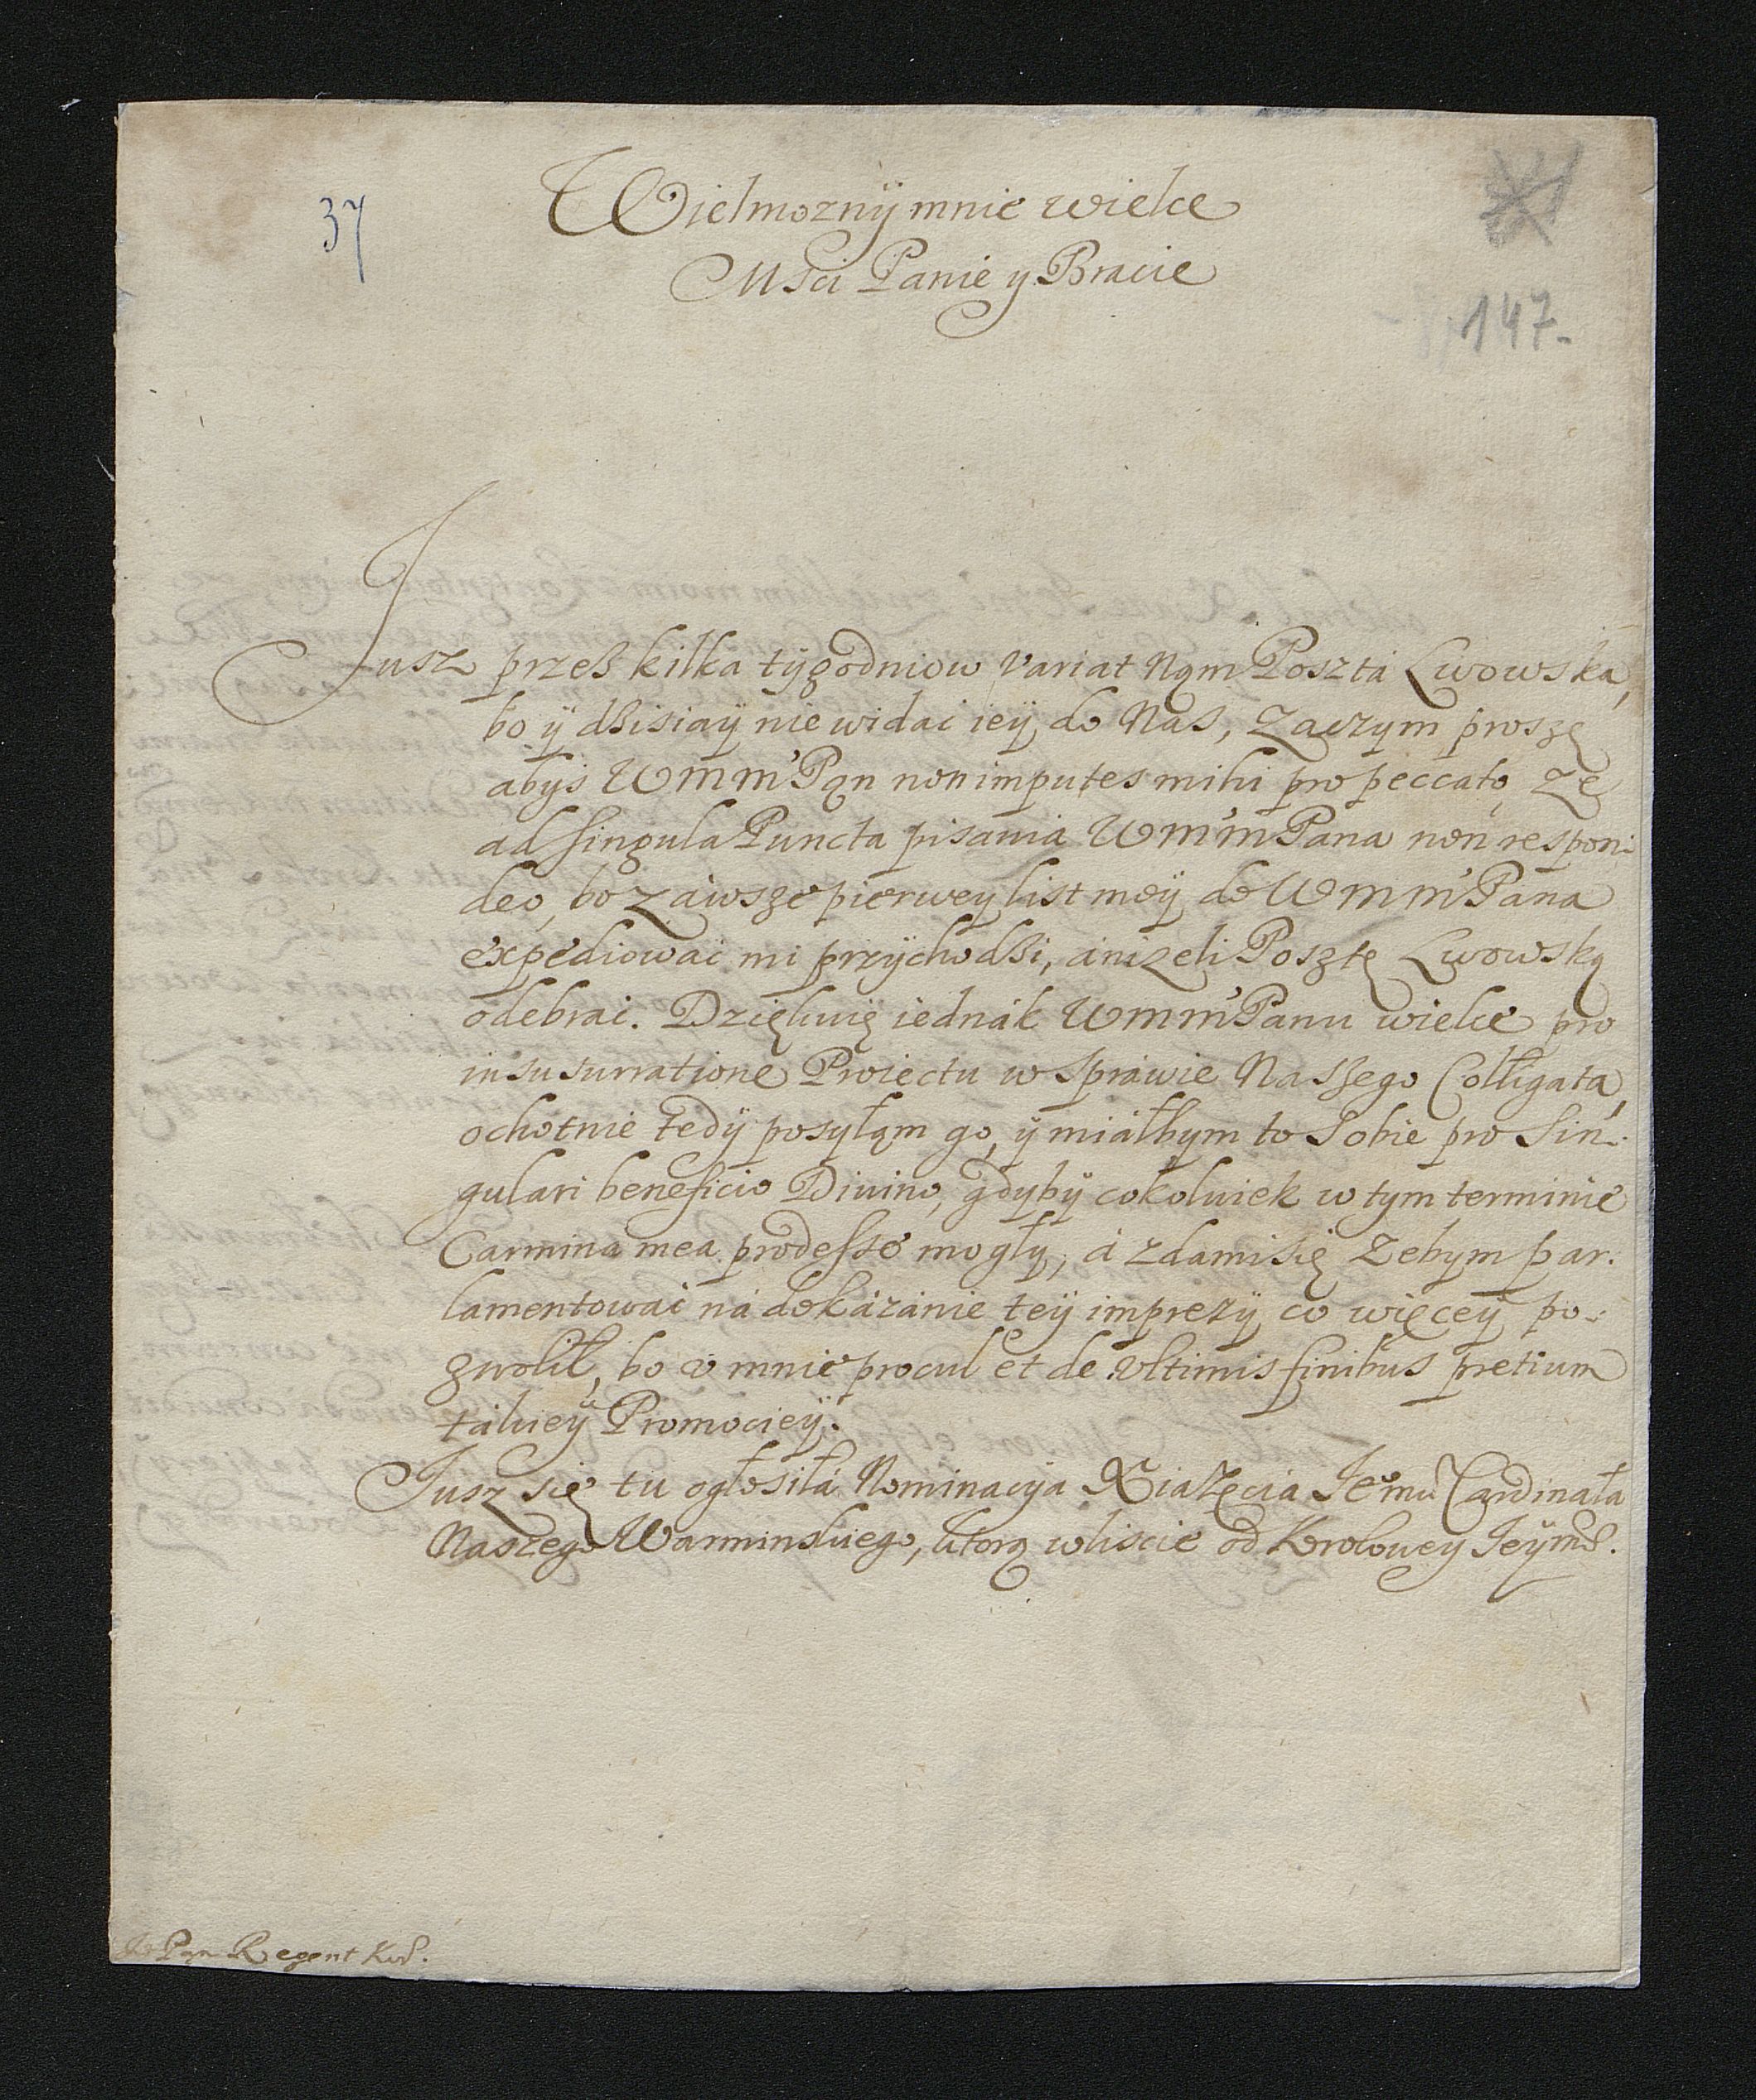 37
Wielmoznÿ mnie wielce
Msci Panie y Bracie
147.
Jusz przeß kilka tÿgodniow variat Nąm Poszta Lwowska,
bo ÿ dßisiaÿ nie widać ieÿ do Nas, Zaczym proszę
abÿs WMM Pąn non imputes mihi pro peccato, że
ad singula Puncta pisania WMM Pana non respon-
deo, bo záwsze pierwey list moÿ do WMM Pana
expediować mi przÿchodßi, aniżeli Posztę Lwowską
odebrać. Dziękuię iednák WMM Panu wielce pro
insusurratione Proiectu w sprawie Naszego Colligata,
ochotnie tedÿ posyłąm go, ÿ miáłbym to sobie pro sin-
gulari beneficio Diuino, gdybÿ cokolwiek w tym terminie
Carmina mea prodesse mogły, á zda mi się żebym par-
lamentowáć ná dokázánie teÿ imprezÿ co więceÿ po-
zwolił, bo v mnie procul et de vltimis finibus pretium
tákieÿ Promocieÿ.
Jusz się tu ogłosiłá Nominacÿa Xiażęcia Jemci Cardinała
Naszego Warminskiego, ktorą w liscie od Krolowey Jeÿmci.
Pąn Regent Kor.